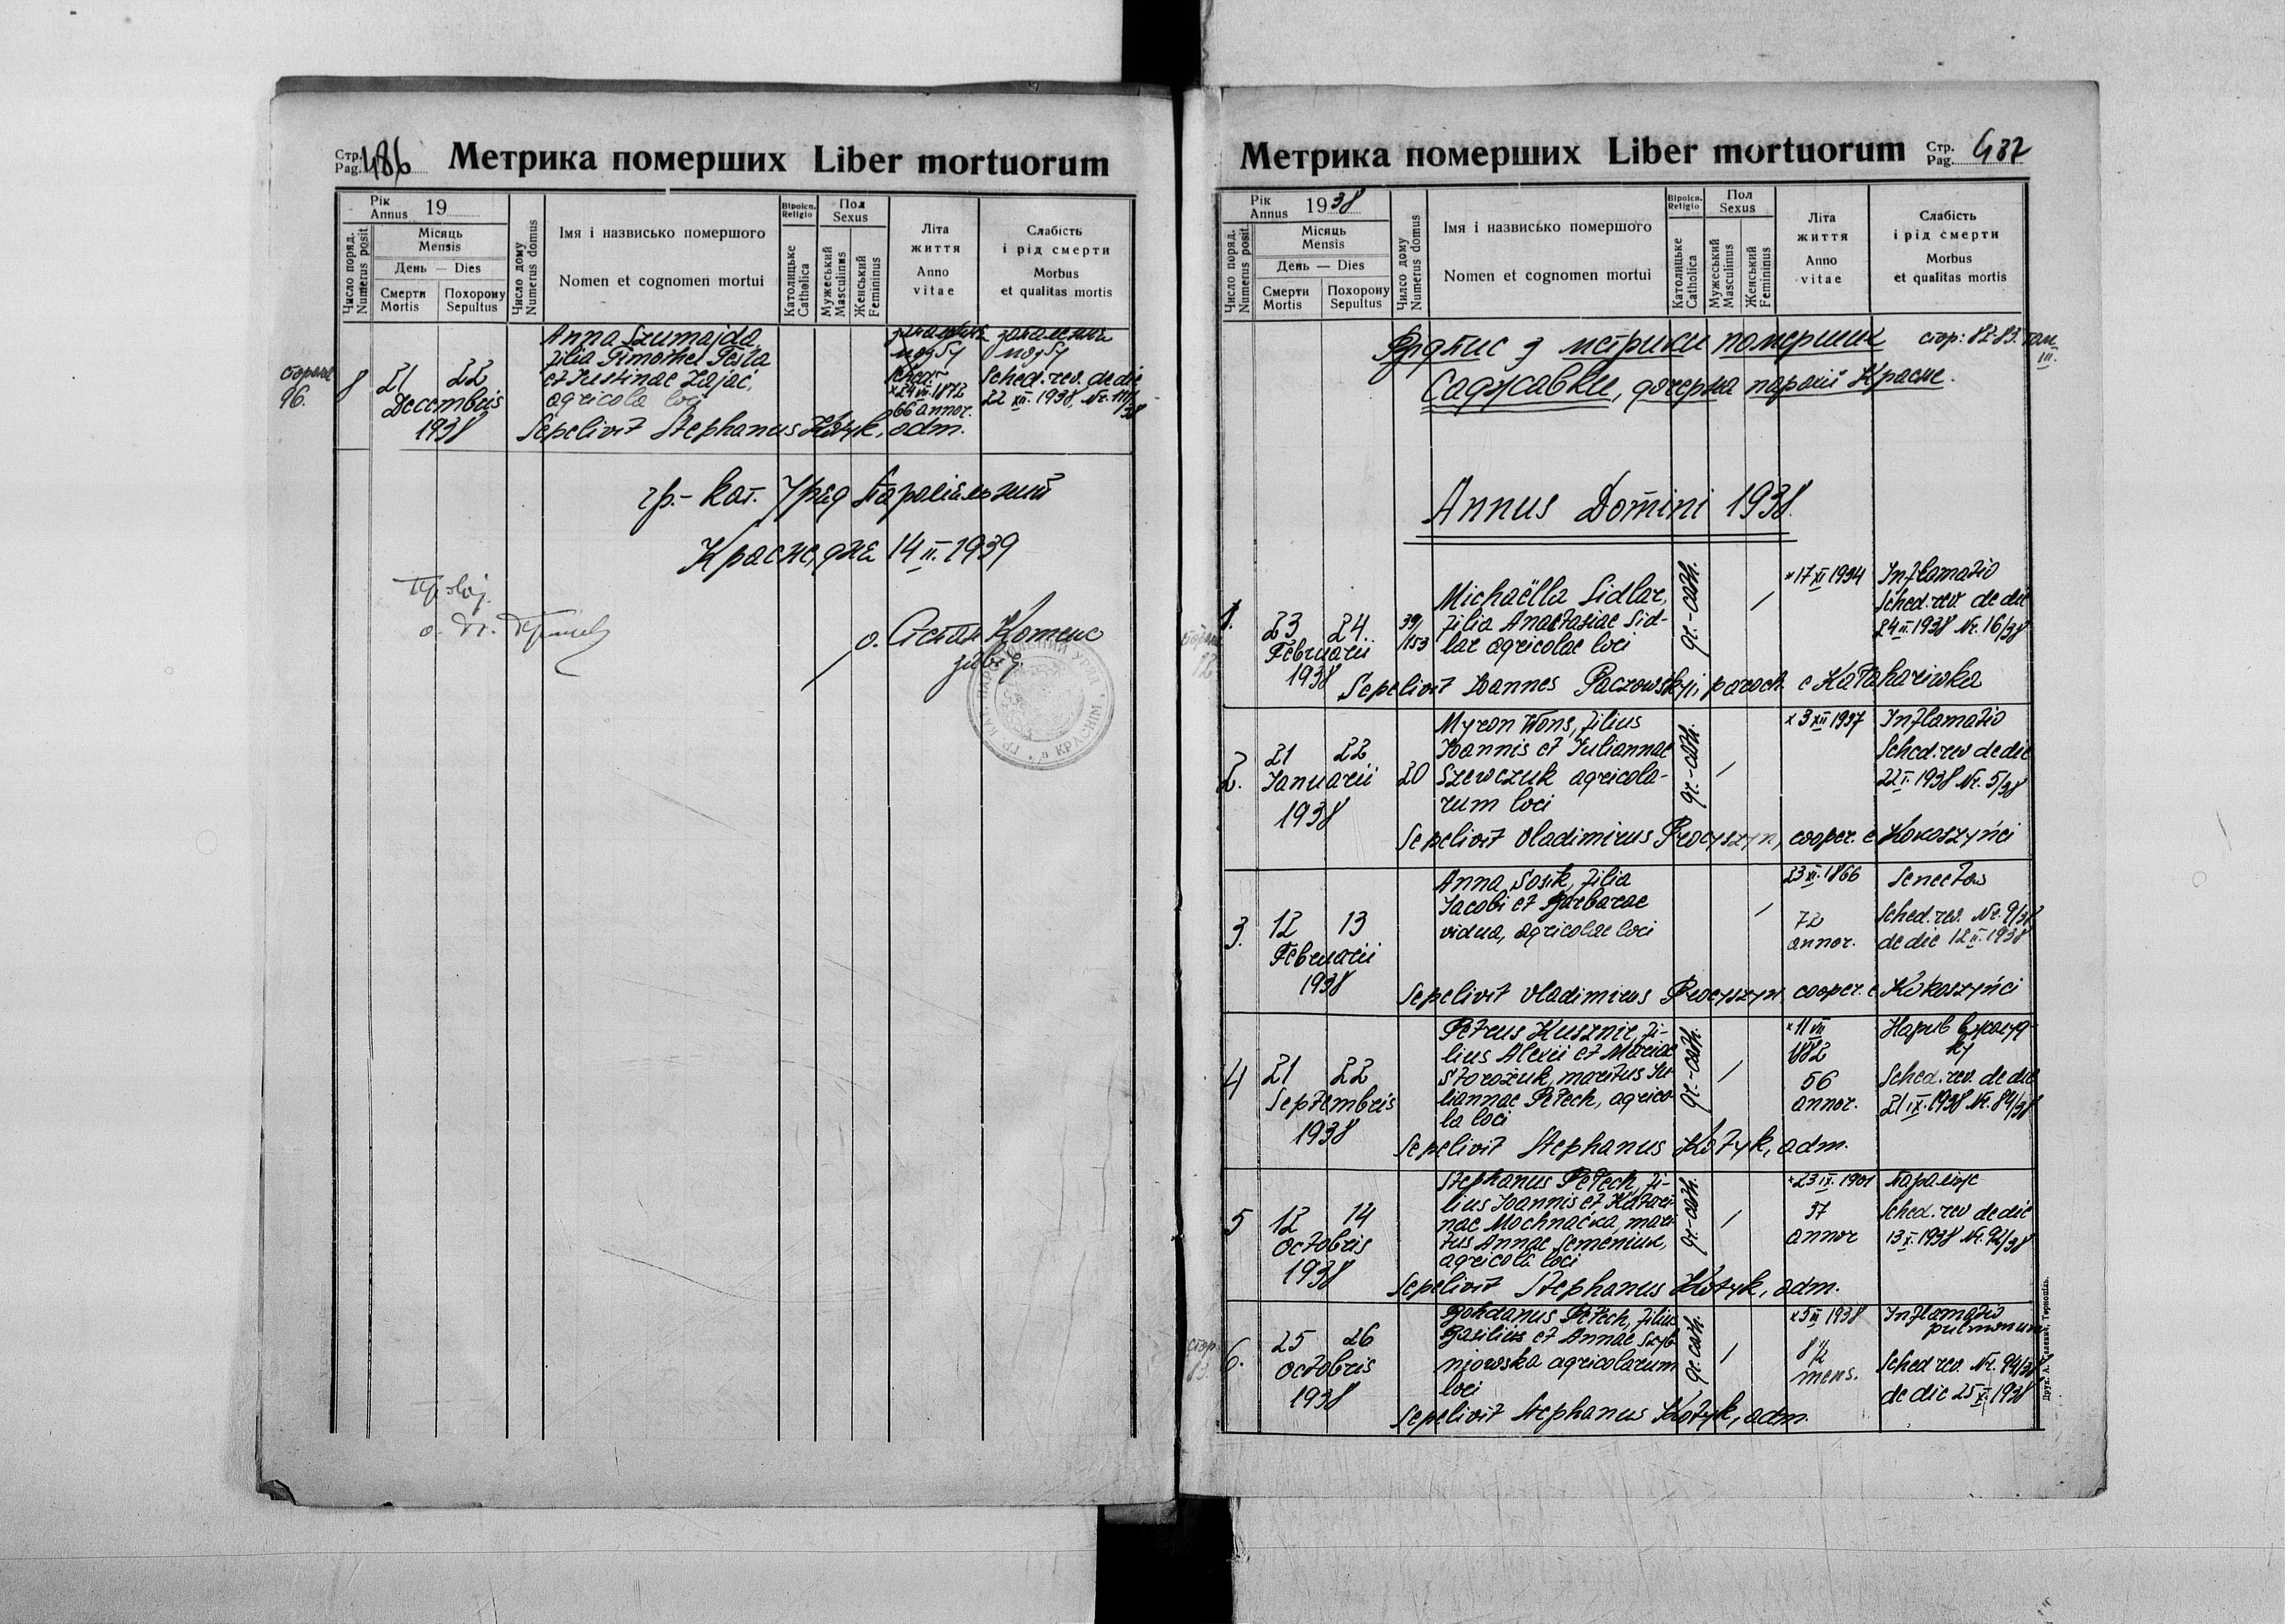 Стр.
Pag. 486
Метрика померших Liber mortuorum
Рік
Annus 19
Місяць
Mensis
День — Dies
Смерти
Mortis
Похорону
Sepultus
Число поряд.
Numerus posit.
Число дому
Numerus domus
Імя і назвисько помершого
Nomen et cognomen mortui
Віроісп.
Religio
Католицьке
Catholica
Пол
Sexus
Мужеський
Masculinus
Женський
Femininus
Літа
життя
Anno
vitae
Слабість
і рід смерти
Morbus
et qualitas mortis
96.
8
21 22
Decembris
1938
Anna Szumajda,
filia Timothei Pesta
et Justinae Zając,
agricola loci
запалення
мозгу
* 24 VII. 1872
66 annor.
запалення
мозгу
Sched. rev. de die
22 XII. 1938, Nr. 111/38
Sepelivit Stephanus Kotyk, adm.
гр.-кат. Уряд Парохіяльний
Красне, дня 14 II. 1939
о. Степан Котик
завід.
ГР. КАТ. ПАРОХІЯЛЬНИЙ УРЯД
в КРАСНІМ
Метрика померших Liber mortuorum
Стр.
Pag. 487
Рік
Annus 1938
Місяць
Mensis
День — Dies
Смерти
Mortis
Похорону
Sepultus
Число поряд.
Numerus posit.
Чилсо дому
Numerus domus
Імя і назвисько помершого
Nomen et cognomen mortui
Віроісп.
Religio
Католицьке
Catholica
Пол
Sexus
Мужеський
Masculinus
Женський
Femininus
Літа
життя
Anno
vitae
Слабість
і рід смерти
Morbus
et qualitas mortis
Відпис з метрики померших стор: 82-83. том III.
Саджавки, дочерна парохії Красне.
Annus Domini 1938.
1.
23 24.
Februarii
1938
39/153
Michaëlla Sidlar,
filia Anastasiae Sid-
lar agricolae loci
gr.-cath.
* 17 XI 1934
Inflamatio
Sched. rev. de die
24 II 1938 Nr. 16/38
Sepelivit Ioannes Paczowskyj, paroch. e Kałaharivka
2.
21 22
Januarii
1938
20
Myron Wons, filius
Ioannis et Juliannae
Szewczuk agricola-
rum loci
gr.-cath.
* 3 XII 1937
Inflamatio
Sched. rev de die
22 I. 1938 Nr. 5/38
Sepelivit Vladimirus Procyszyn, cooper. e Kokoszyńci
3.
12 13
Februarii
1938
Anna Sosik, filia
Jacobi et Barbarae
vidua, agricolae loci
23 XI. 1866
72
annor.
Senectus
Sched. rev. Nr. 9/38
de die 12 II. 1938
Sepelivit Vladimirus Procyszyn, cooper. e Kokoszyńci
4
21 22
Septembris
1938
Petrus Kusznir, fi-
lius Alexii et Mariae
Storożuk, maritus Ju-
liannae Petech, agrico-
la loci
gr.-cath.
* 11 VII
1882
56
annor.
Нарив в жолуд-
ку
Sched. rev. de die
21 IX. 1938 Nr. 84/38
Sepelivit Stephanus Kotyk, adm.
5
12 14
Octobris
1938
Stephanus Petech, fi-
lius Ioannis et Katari-
nae Mochnacka, mari-
tus Annae Semeniuk,
agricola loci
gr.-cath.
* 23 IX. 1901
37
annor
параліж
Sched. rev de die
13 X. 1938 Nr. 92/38
Sepelivit Stephanus Kotyk, adm.
стор.
83.
6.
25 26
Octobris
1938
Bohdanus Petech, filius
Basilius et Annae Szyb-
niowska agricolarum
loci
gr. cath.
* 5 III 1938
8 1/2
mens.
Inflamatio
pulmonum
Sched rev. Nr. 94/38
de die 25 X. 1938
Sepelivit Stephanus Kotyk, adm.